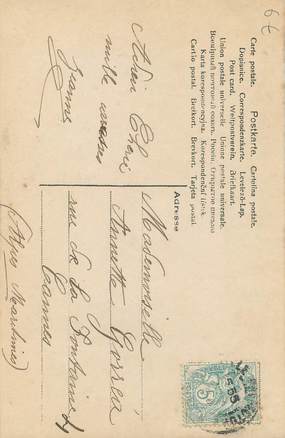 6 €
Carte postale. Postkarte. Cartolina postale.
Dopisnice. Correspondenzkarte. Levelező-Lap.
Post card. Weltpostverein. Briefkaart.
Union postale universelle. Unione postale universale.
Karta korespondencyjna. Korespondenční lístek.
Cartão postal. Brefkort. Brevkort. Tarjeta postal.
Adresse
mille
Jeanne
Mademoiselle
Annette Corréa
rue de La Fontaine 4
Cannes
(Alpes Maritimes)
5